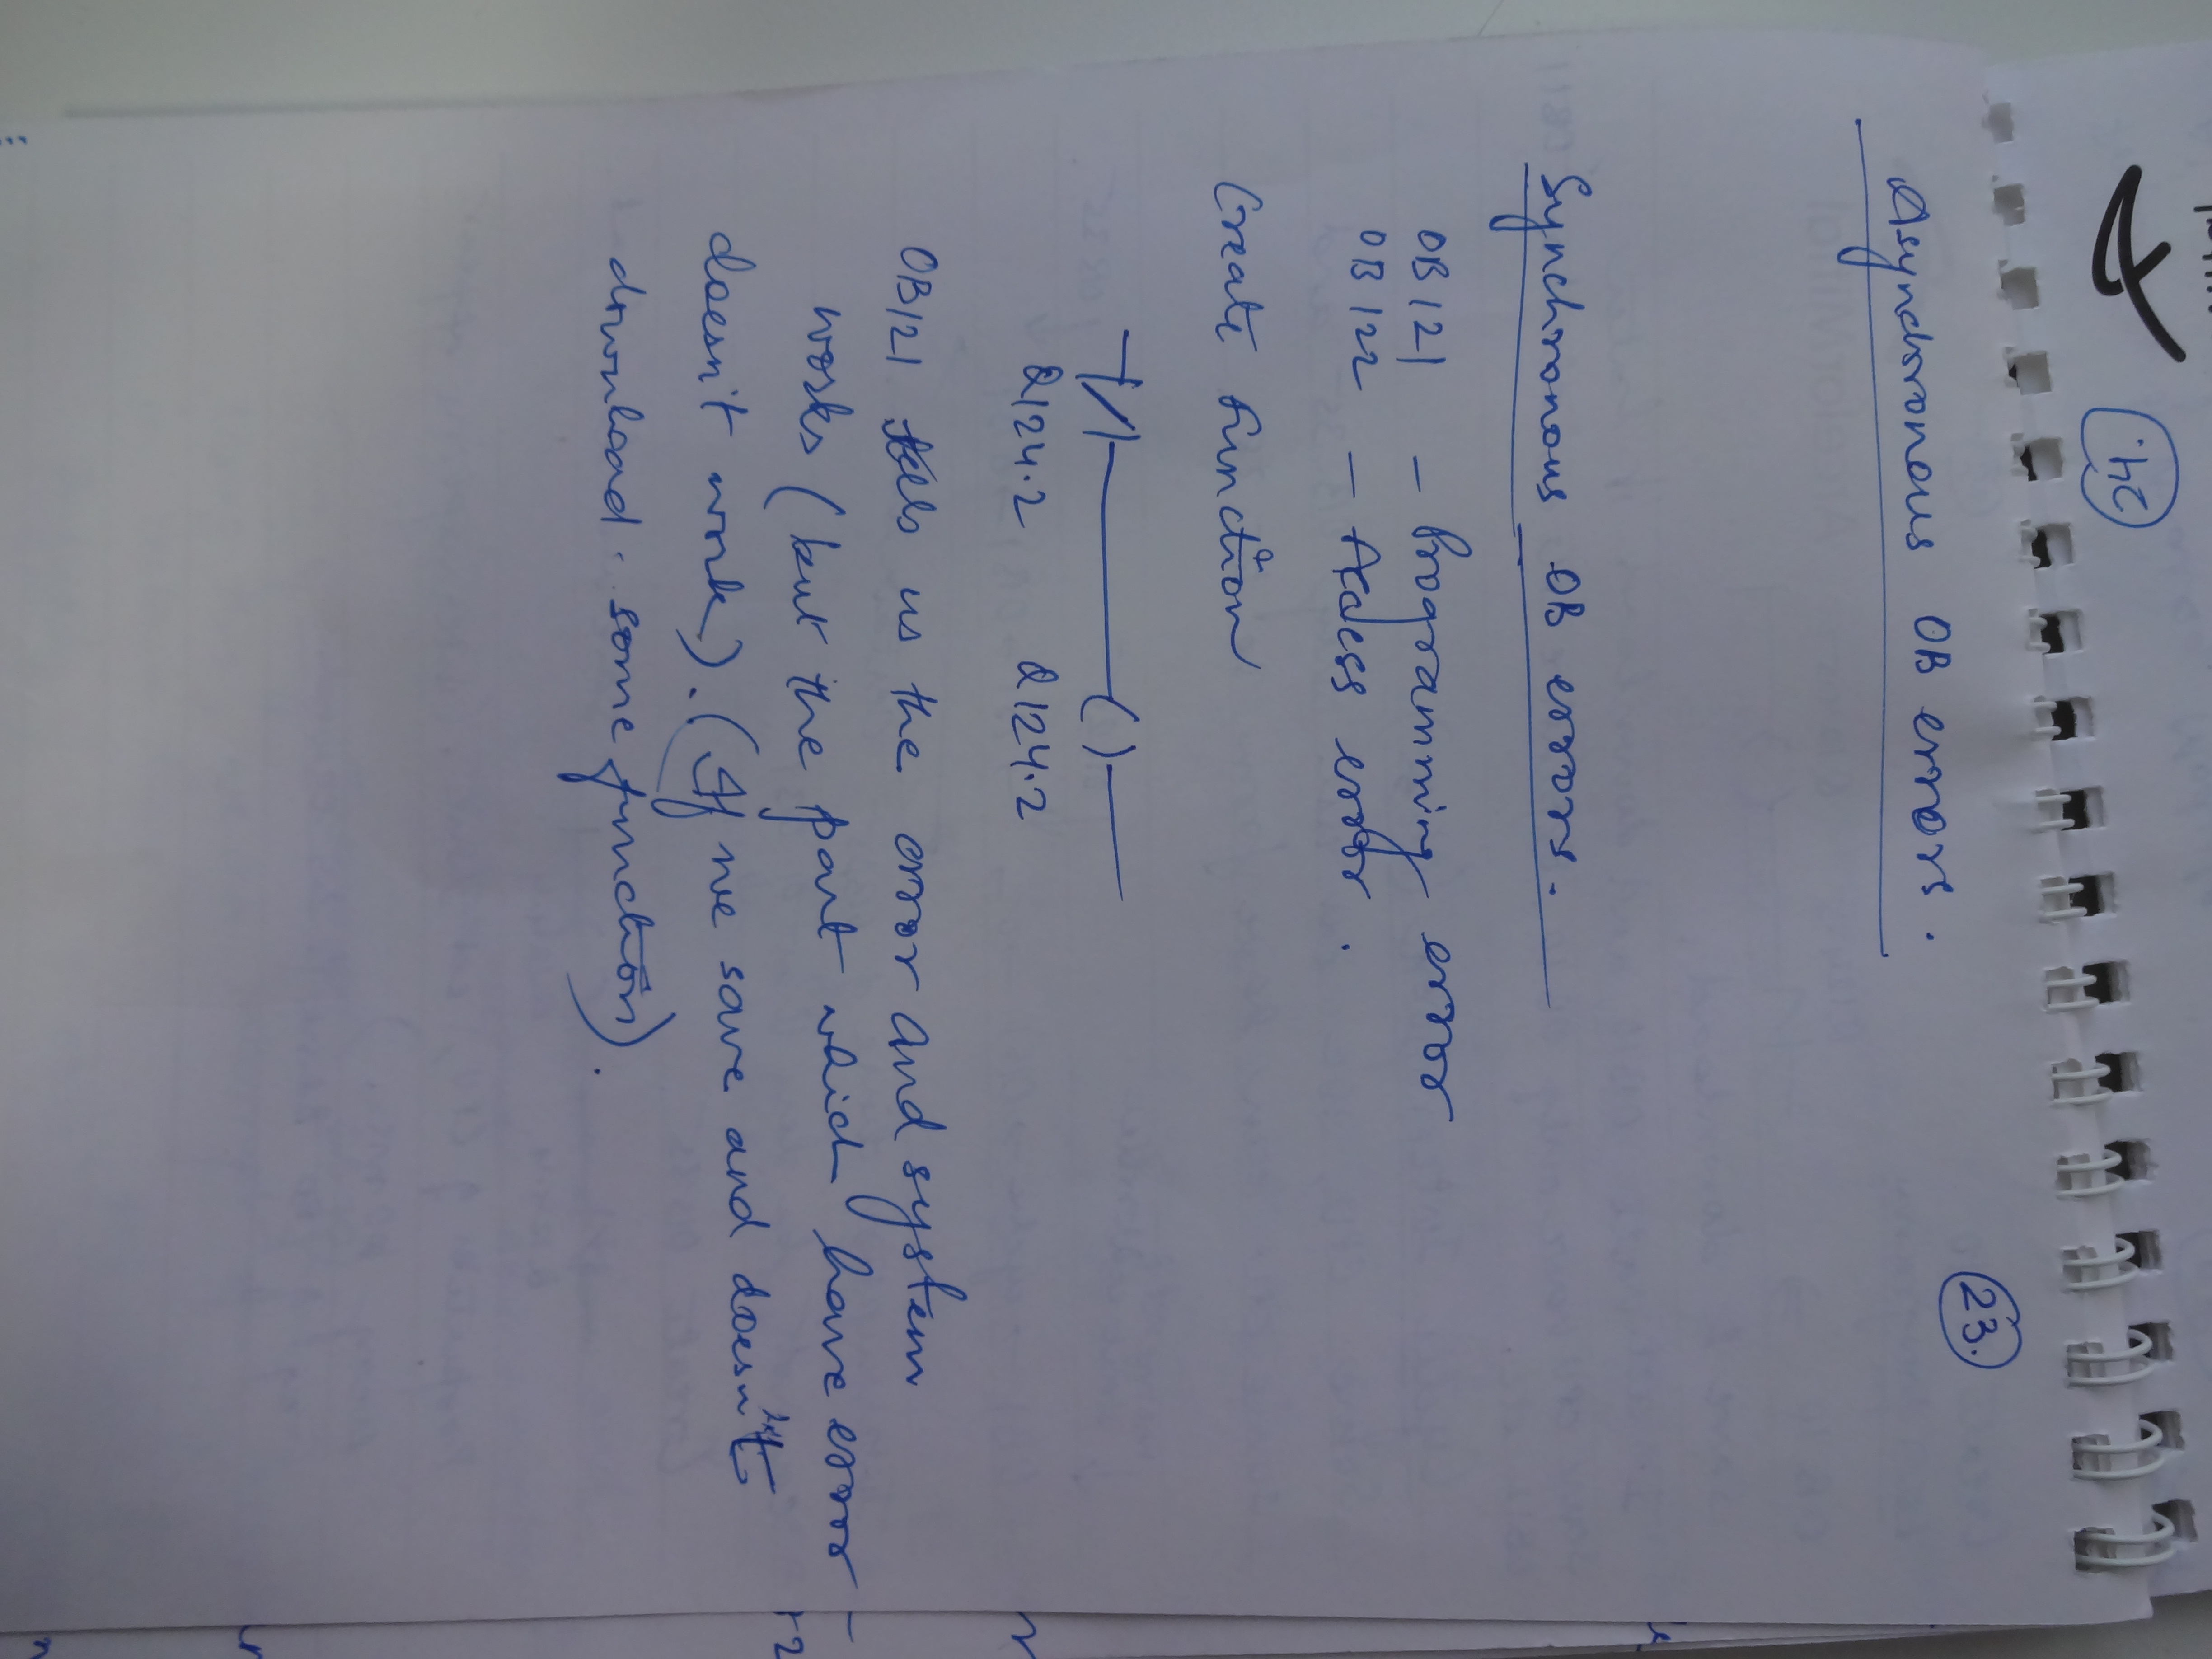 24.
23.
Asynchronous OB errors.
Synchronous OB errors.
OB 121 - Programming error
OB 122 - Access error.
Create function
Q124.2 Q124.2
OB121 tells us the error and system
works (but the part which have error
doesn't work). (If we save and doesn't
download some function).